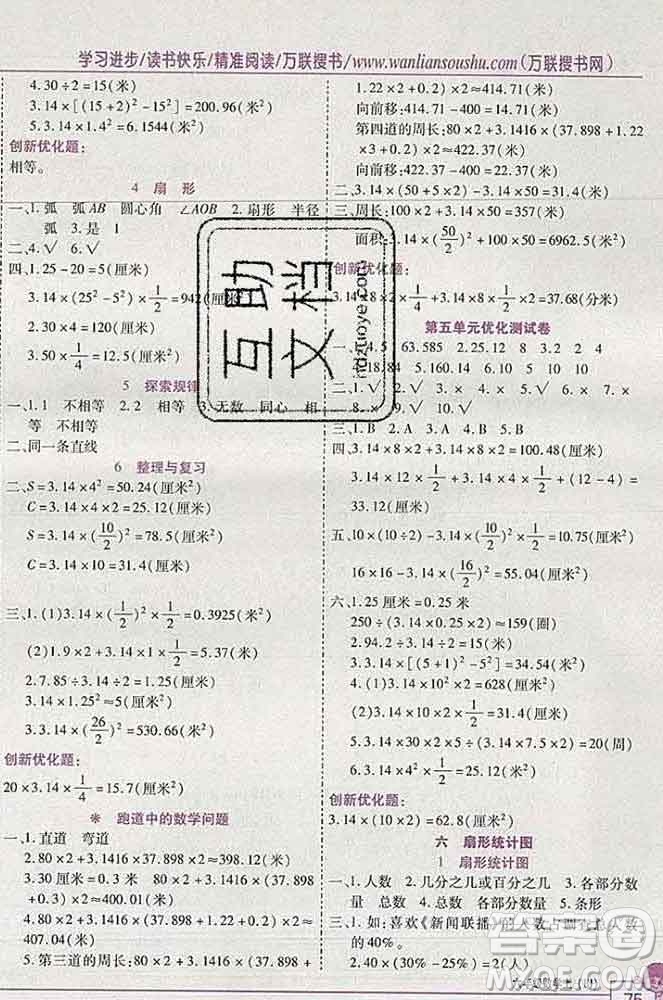 学习进步/读书快乐/精准阅读/万联搜书/www.wanliansoushu.com(万联搜书网)
4.30÷2=15(米)
3.14×[(15²-15²]=200.96(米)
5.3.14×1.4²=6.1544(米²)
创新优化题:
相等。
4 扇 形
一、1.弧 弧AB 圆心角 ∠AOB 2.扇形 半径
弧 3.是 1
二、4.√ 6.√
四、1.25-20=5(厘米)
3.14×(25²-5²)×1/2=942(厘米²)
2.30×4=120(厘米)
3.50×1/4=12.5(厘米)
5 探索规律
一、1.1 不相等 2.2 相等 3.无数 同心 相
等 不相等
二、同一条直线
6 整理与复习
二、S=3.14×4²=50.24(厘米²)
C=3.14×4×2=25.12(厘米)
S=3.14×(10/2)²=78.5(厘米²)
C=3.14×10=31.4(厘米)
三、1.(1)3.14×(1/2)²×1/2=0.3925(米²)
(2)1.9×2+3.14×1×1/2=5.37(米)
2.7.85÷3.14÷2=1.25(米)
3.14×1.25²≈5(米²)
3.3.14×(26/2)²=530.66(米²)
创新优化题:
20×3.14×1/4=15.7(厘米²)
※ 跑道中的数学问题
一、1.直道 弯道
2.80×2+3.1416×37.898×2≈398.12(米)
3.30厘米=0.3米 80×2+3.1416×(37.898
+0.3)×2≈400.01(米)
4.80×2+3.1416×(37.898+1.22+0.2)×2≈
407.04(米)
5.第四道的周长:80×2+3.1416×(37.898+
1.22×2+0.2)×2≈414.71(米)
向前移:414.71-400=14.71(米)
第四道的周长:80×2+3.1416×(37.898+1.22
×3+0.2)×2≈422.37(米)
向前移:422.37-400=22.37(米)
二、3.14×(50+5×2)-3.14×50=31.4(米)
三、周长:100×2+3.14×50=357(米)
面积:3.14×(50/2)²+100×50=6962.5(米²)
创新优化题:
3.14×8×2×1/4+3.14×8×1/2×2=37.68(分米)
第五单元优化测试卷
一、1.4.5 63.585 2.25.12 8 3.2 4
4.18.84 5.160.14 5 6.10.5 7.3.14
二、1.√ 2.√ 3.× 4.× 5.× 6.× 7.√
8.× 9.√ 10.√
三、1.B 2.A 3.A 4.B 5.B
四、3.14×8×2×1/2×2=100.48(厘米)
3.14×12×1/2+3.14×4×1/2+(12-4)=
33.12(厘米)
五、10×(10÷2)-3.14×(10/2)²×1/2=10.75(厘米²)
16×16-3.14×(16/2)²=55.04(厘米²)
六、1.25厘米=0.25米
250÷(3.14×0.25×2)≈159(圈)
2.94.2÷3.14÷2=15(米)
3.3.14×[(5+1)²-5²]=34.54(米²)
4.(1)3.14×10²×2=628(厘米²)
(2)3.14×10×2×1/2×3=94.2(厘米)
5.3.14×(20×2+10)×1/2×5=392.5(厘米)
创新优化题:
3.14×(10×2)=62.8(厘米²)
六 扇形统计图
1 扇形统计图
一、1.人数 2.几分之几或百分之几 3.各部分数
量 总数 4.总数 各部分数量 5.条形
三、1.如:喜欢《新闻联播》的人数占调查总人数
的40%。
2.40×(30%-25%)=2(人)
75
互助文档
hdzuoye.com
答案圈
MXQE.COM